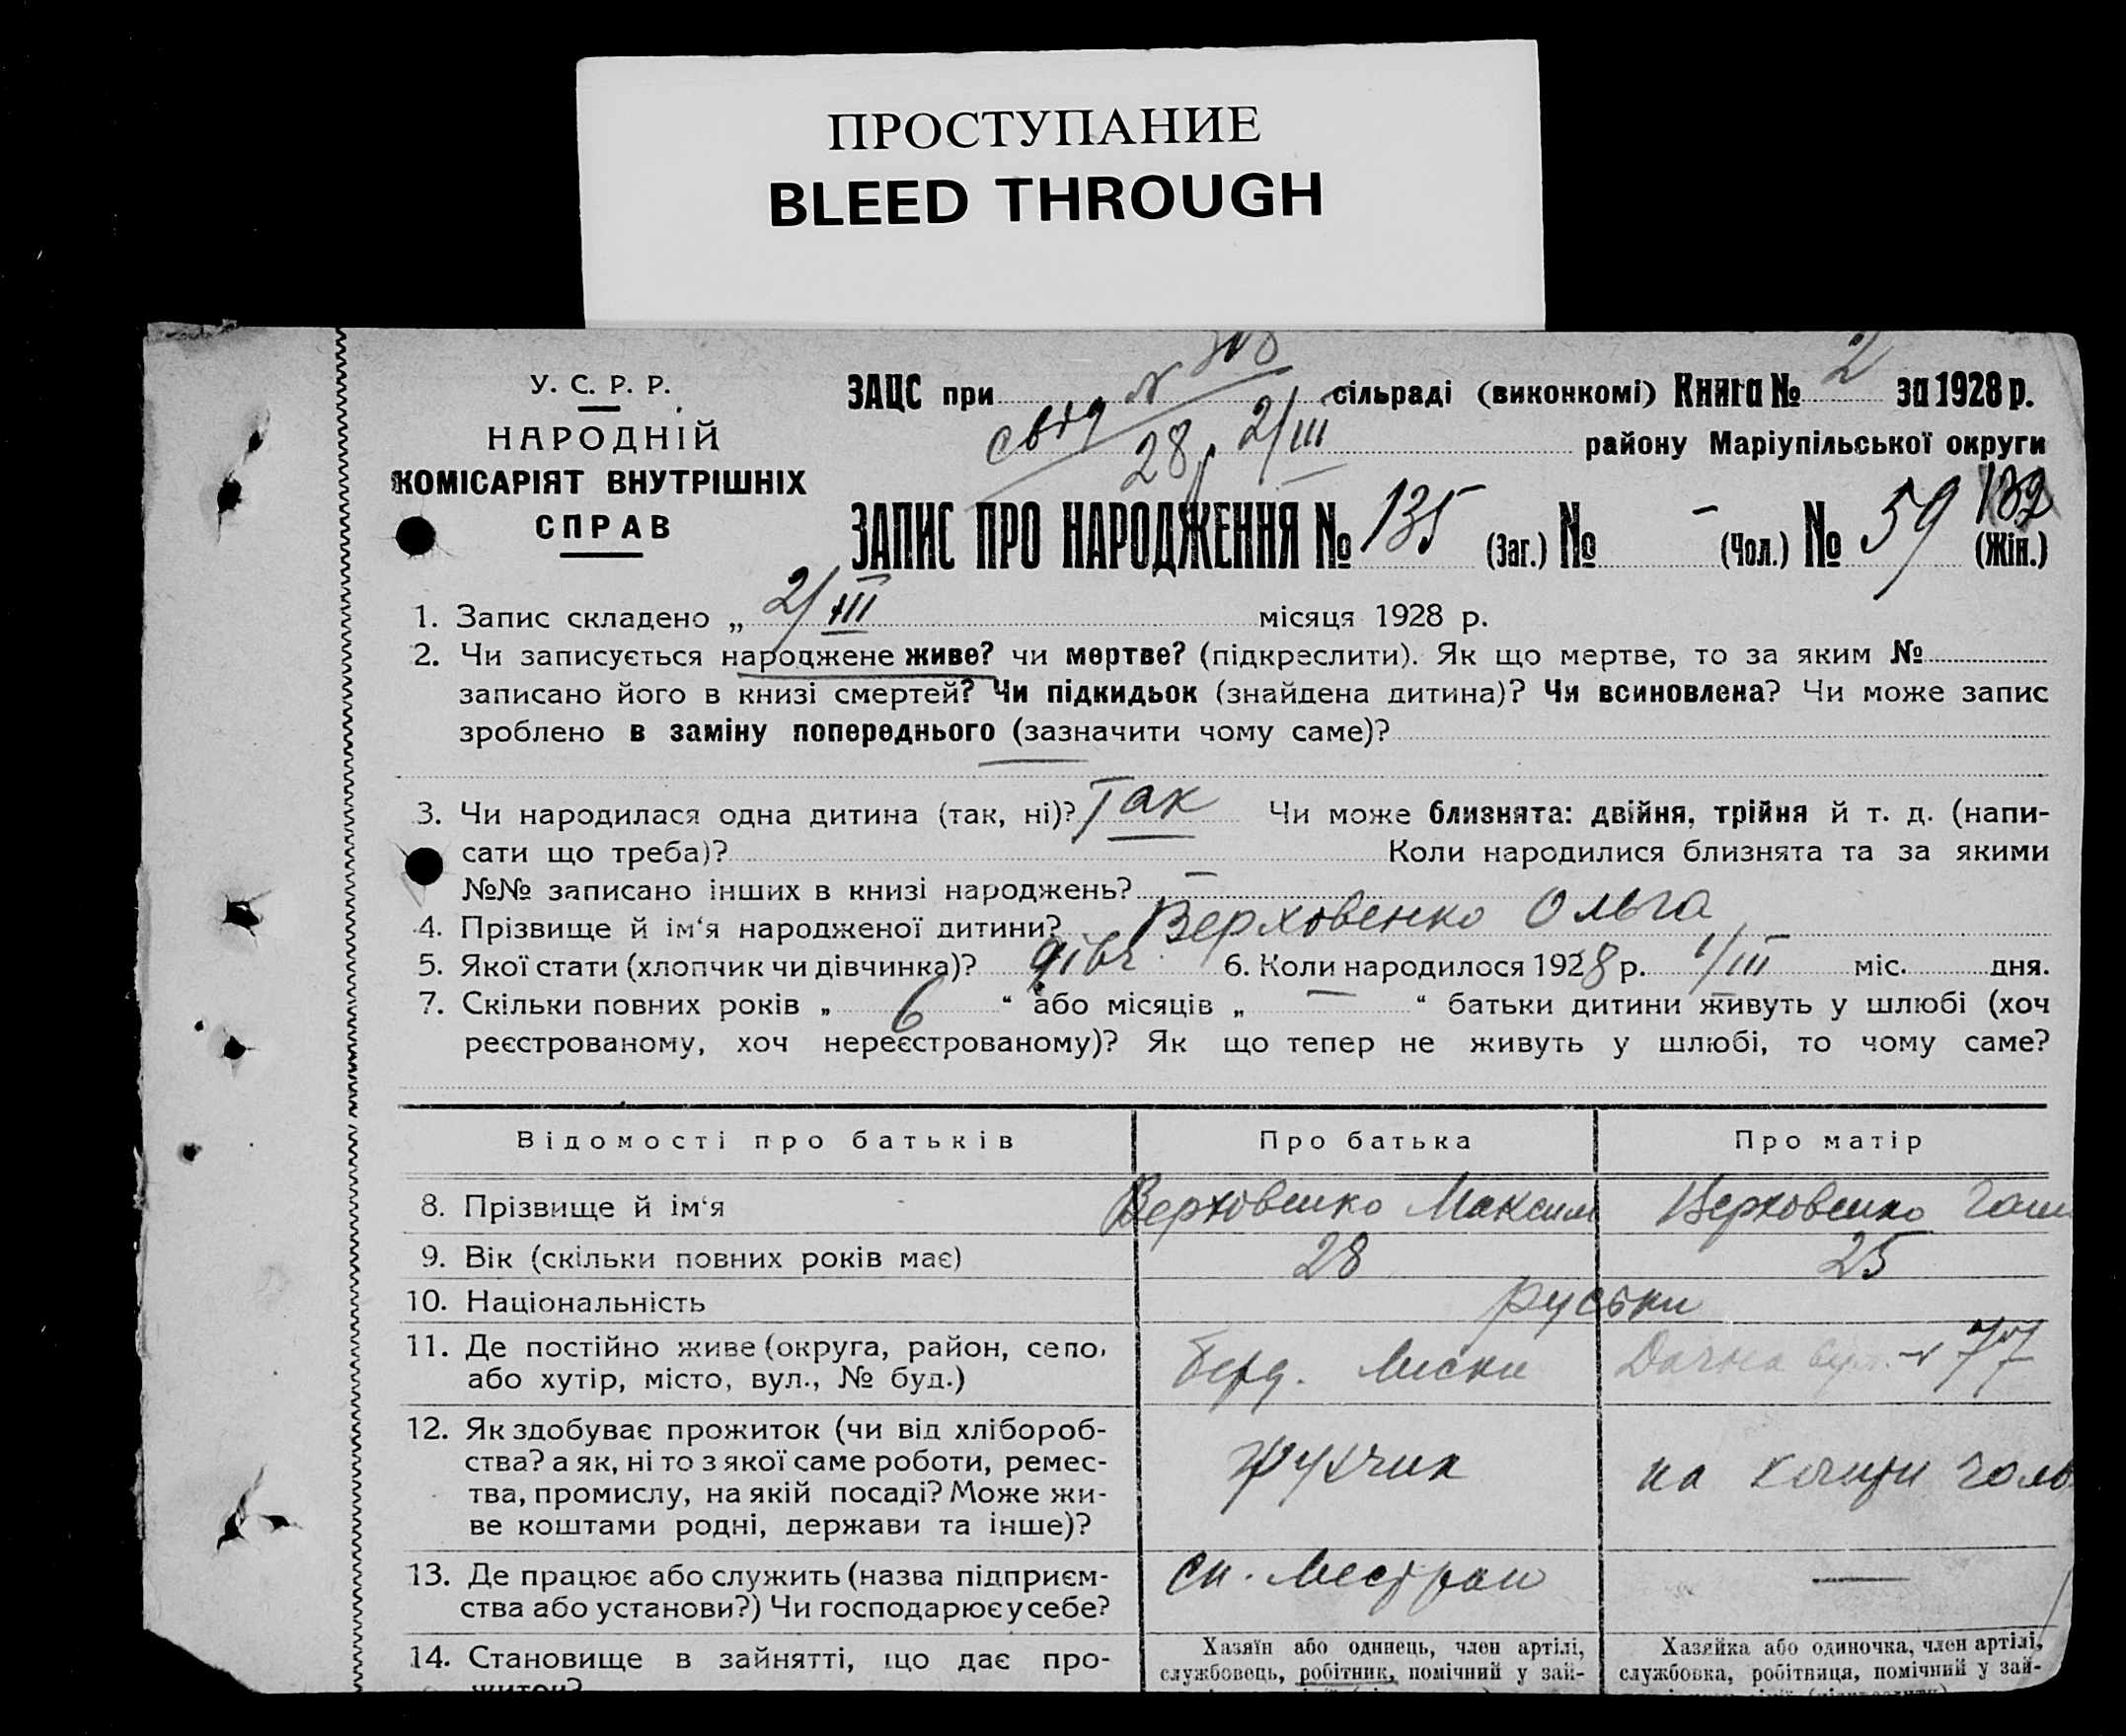 ПРОСТУПАНИЕ
BLEED THROUGH
У. С. Р. Р.
НАРОДНІЙ
КОМІСАРІЯТ ВНУТРІШНІХ
СПРАВ
ЗАЦС при сільраді (виконкомі) Книга № 2 за 1928 р.
28 р 2/III району Маріупільської округи
ЗАПИС ПРО НАРОДЖЕННЯ № 135 (Заг.) № – (Чол.) № 59 (Жін.)
1. Запис складено „ 2/III місяця 1928 р.
2. Чи записується народжене живе? чи мертве? (підкреслити). Як що мертве, то за яким №
записано його в книзі смертей? Чи підкидьок (знайдена дитина)? Чи всиновлена? Чи може запис
зроблено в заміну попереднього (зазначити чому саме)?
3. Чи народилася одна дитина (так, ні)? Так Чи може близнята: двійня, трійня й т. д. (напи-
сати що треба)? Коли народилися близнята та за якими
№№ записано інших в книзі народжень? –
4. Прізвище й ім'я народженої дитини? Верховенко Ольга
5. Якої стати (хлопчик чи дівчинка)? дівч. 6. Коли народилося 1928 р. 1/III міс. дня.
7. Скільки повних років „ 6 “ або місяців „ — “ батьки дитини живуть у шлюбі (хоч
реєстрованому, хоч нереєстрованому)? Як що тепер не живуть у шлюбі, то чому саме?
Відомості про батьків Про батька Про матір
8. Прізвище й ім'я Верховенко Максим Верховенко
9. Вік (скільки повних років має) 28 25
10. Національність руськи
11. Де постійно живе (округа, район, село,
або хутір, місто, вул., № буд.) Берд. Дачна 77
12. Як здобуває прожиток (чи від хлібороб-
ства? а як, ні то з якої саме роботи, ремес-
тва, промислу, на якій посаді? Може жи-
ве коштами родні, держави та інше)? на
13. Де працює або служить (назва підприєм-
ства або установи?) Чи господарює у себе? —
14. Становище в зайнятті, що дає про-
житок?
Хазяїн або одинець, член артілі,
службовець, робітник, помічний у зай-
Хазяйка або одиночка, член артілі,
службовка, робітниця, помічний у зай-